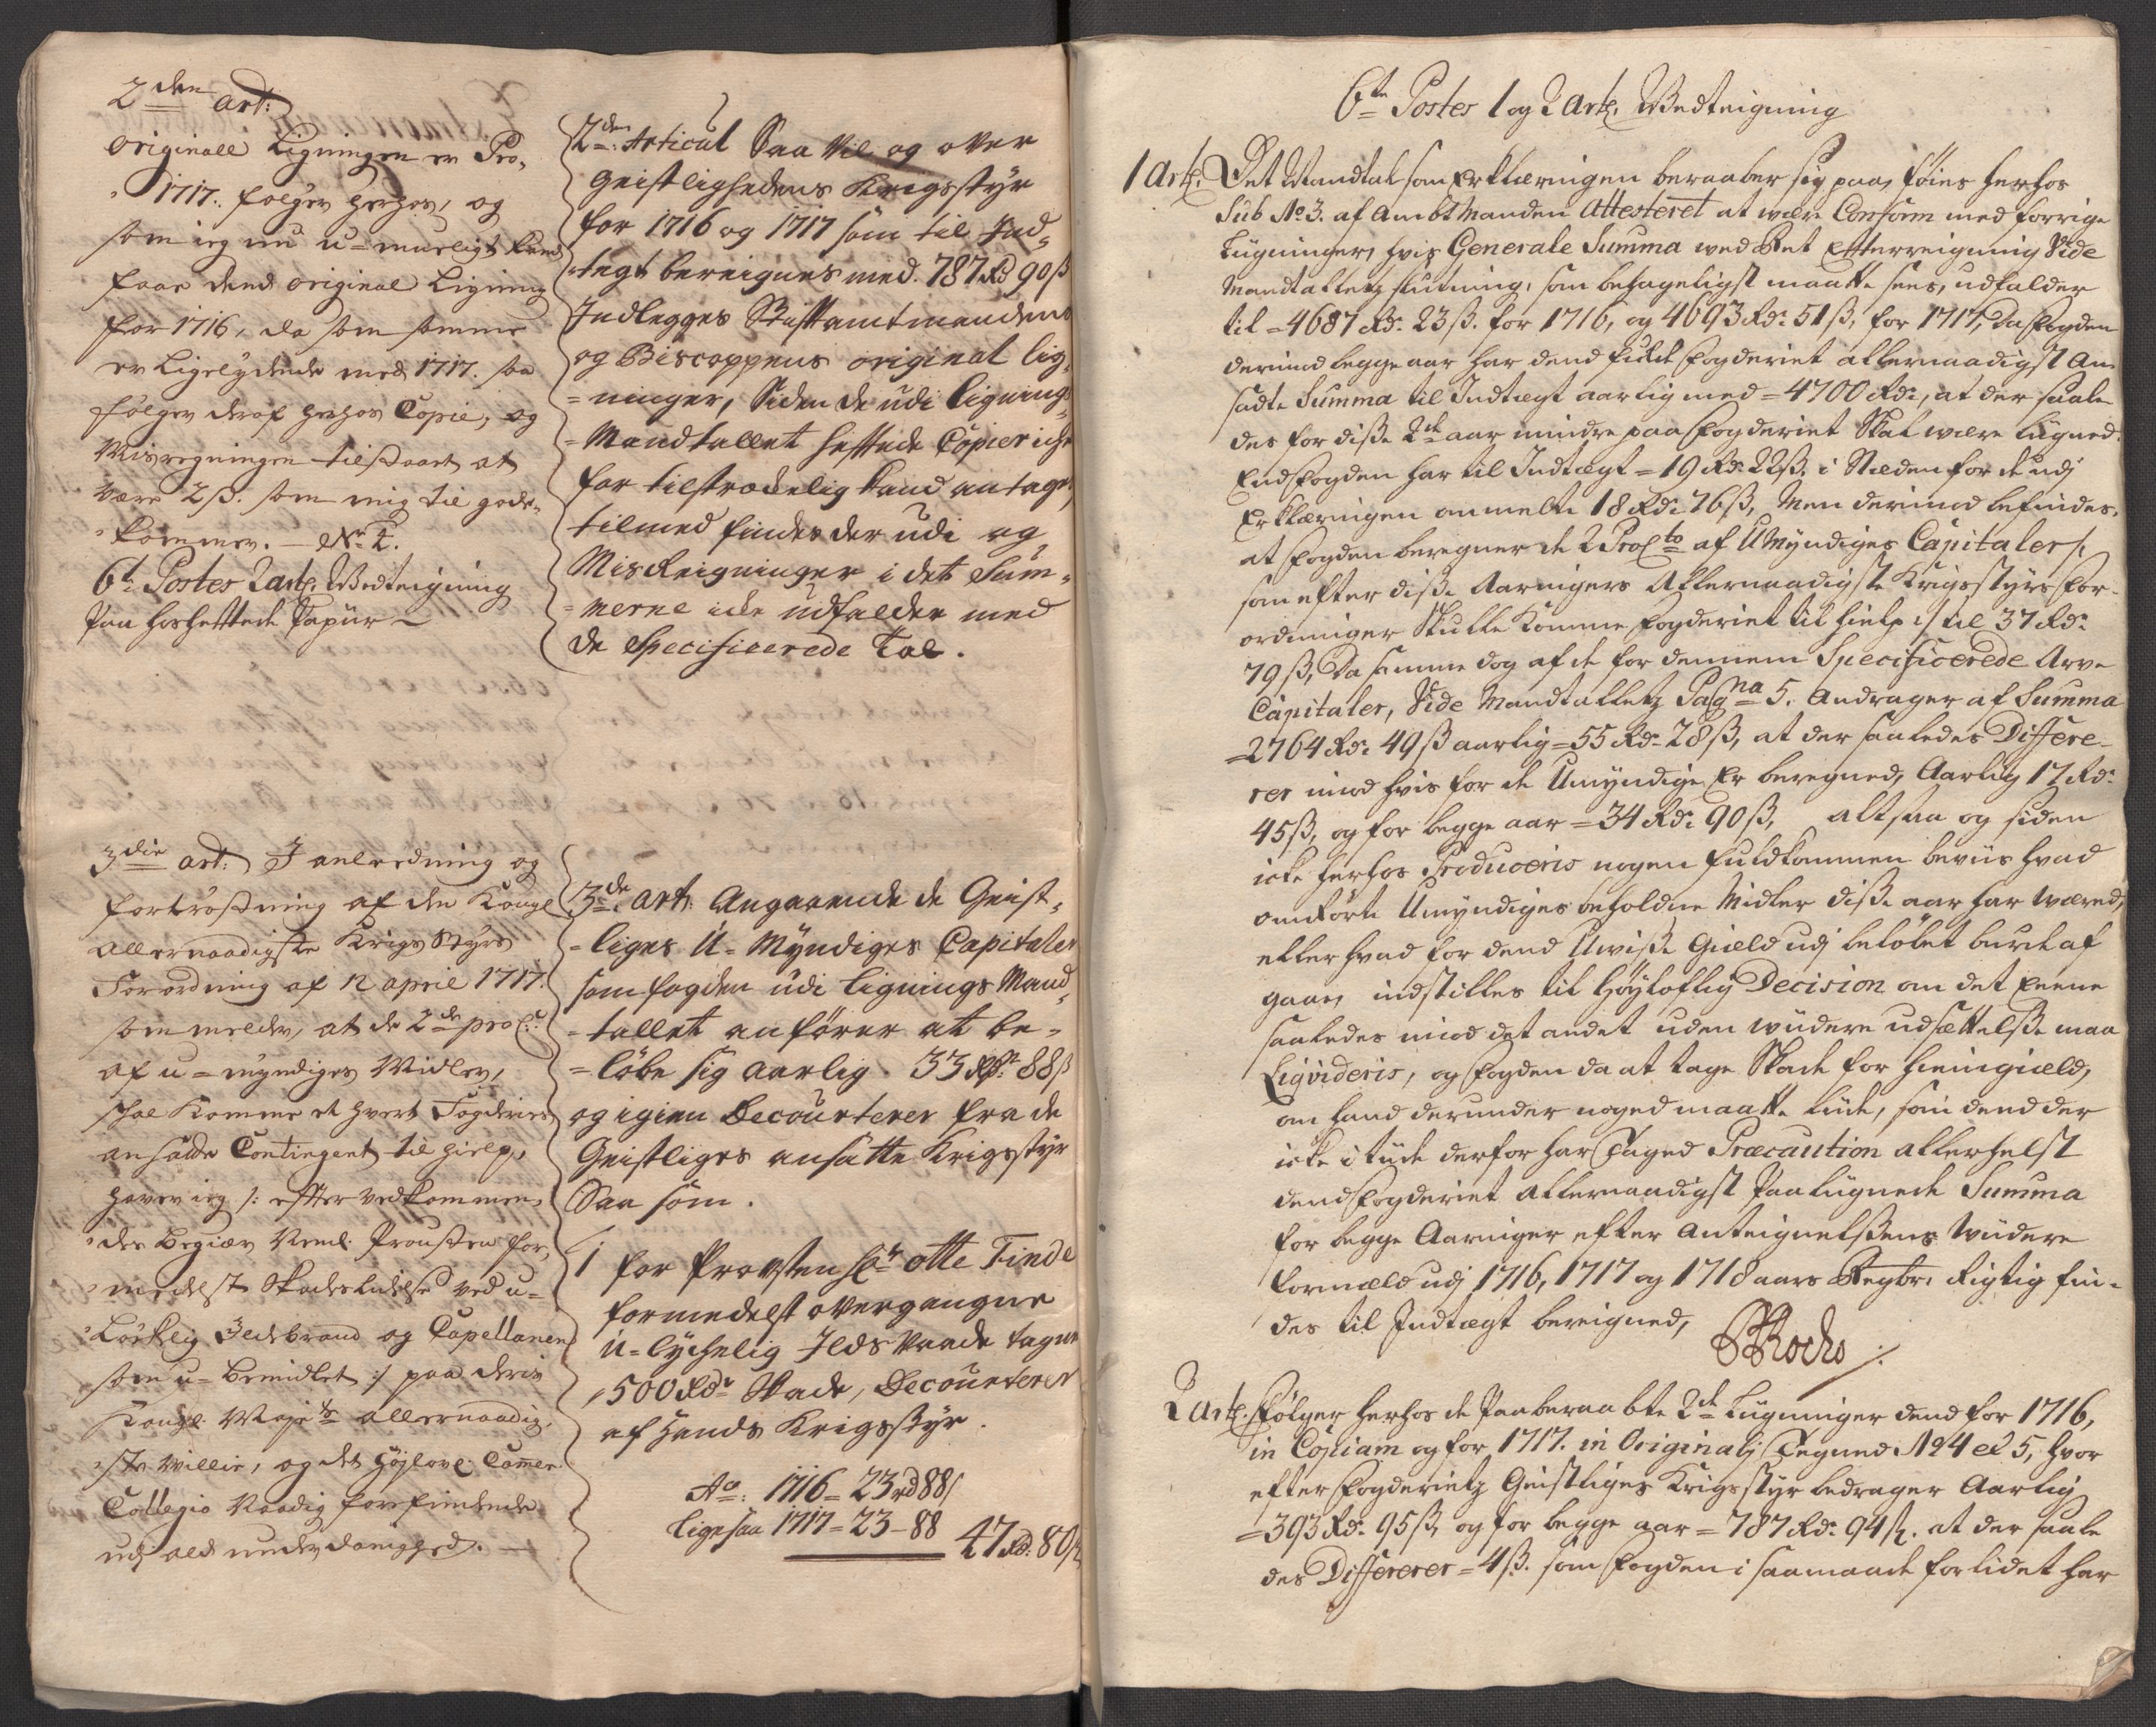 2den art:
originall Ligningen er Pro,
1717. følger herhos, og
som ieg nu u-muueligt kand
faae dend original Ligning
for 1716, da som somme
er Ligelydende med 1717. saa
følger deraf herhos Copie, og
Misregningen tilstaaes at
være 2 ß. som mig til gode,
kommer. — No 4.
6te Postes 2 art. Vedteigning
Paa hoshettede Papiir ~
2den: Articul Saa vil og over
Geistlighedens Krigsstyr
for 1716 og 1717 som til Ind-
tegt bereignes med. 787 Rd 90 ß
Indlegges Stiftamtmandens
og Biscoppens original lig-
ninger, Siden de udi Lignings
Mandtallet heftede Copier iche
for tilstrechelig kand antages,
tilmed findes der udi og
Misreigninger i det Sum-
merne icke udfalder med
de Specificerede tal.
3die art: I anledning og
fortrøstning af den Kongl
allernaadigste Krigs Styrs
Forordning af 12 april 1717.
som melder, at de 2de proCt:
af u-myndiges Midler,
skal komme et hvert Fogderies
ansadte Contingent til hielp,
haver ieg /: efter vedkommen-
des begiær Neml: Prousten for-
medelst Skadeslidelse ved u-
Løcklig Ildebrand og Capellanen
som u-bemidlet :/ paa deris
Kongl: Mayts allernaadig-
ste Villie, og det Høylovl: Camer
Collegio Naadig forfindende
udj ald underdanighed. —
3de: art. Angaaende de Geist-
liges U-Myndiges Capitaler
som fogden udi Lignings Mand-
tallet anfører at be-
løbe sig aarlig 33 Rdr 88 ß
og igien Decourterer fra de
Geistliges ansatte Krigsstyr
Saa som.
1 for Provsten Hr otte Finde
formedelst overgangne
u-lychelig Ilds Vaade tagne
1500 Rdr Skade, Decourterer
af Hands Krigsstyr.
Ao: 1716 = 23 rd 88 ß
Ligesaa 1717 = 23 – 88 47 Rd: 80 ß
6te Postes 1 og 2 Art. Vedteigning
1 Art. Det Mandtal som Erklæringen beraaber sig paa, føies herhos
Sub No 3. af Ambtmanden Attesteret at være Conform med forrige
Liigninger, hvis Generale Summa ved Ret Efterreigning Vide
Mandtalletz slutning, som behageligst maatte sees, udfalder
til = 4687 Rdr 23 ß. for 1716, og 4693 Rdr 51 ß, for 1717, Da Fogden
derimod begge aar har dend fulde Fogderiet allernaadigst An-
sadte Summa til Indtægt aarlig med = 4700 Rdr, at der saale
des for disse 2de aar mindre paa Fogderiet Skal være liigned
End Fogden har til Indtægt = 19 Rdr 22 ß. i Stæden for de udj
Erklæringen anmelte 18 Rdr 76 ß, Men derimod befindes,
at Fogden beregner de 2 ProCto af Umyndiges Capitaler /:
som efter disse Aaringers Allernaadigste Krigsstyrs For-
ordninger Skulle komme Fogderiet til hielp :/ til 37 Rdr
79 ß, Da somme dog af de for dennem Specificerede Arve
Capitaler, Vide Mandtalletz Pagna 5. andrager af Summa
= 2764 Rdr 49 ß aarlig = 55 Rdr 28 ß, at der saaledes Differe-
rer imod hvis for de Umyndige Er beregned, Aarlig 17 Rdr
45 ß, og for begge aar = 34 Rdr 90 ß, altsaa og siden
icke herhos Produceris nogen fuldkommen beviis hvad
omrørte Umyndiges beholdne Midler disse aar har wæred,
eller hvad for dend Uvisse Gield udj beløbet burde af
gaae, indstilles til Høyloflig Decision om det Eene
saaledes imod det andet uden wiidere udsættelse maa
Liqvideris, og Fogden da at tage Skade for hiemgield,
om hand derunder noged maatte liide, som dend der
icke i tiide derfor har Tagned Præcaution allerhelst
dend Fogderiet allernaadigst Paaliignede Summa
for begge Aaringer efter Anteignelsens wiidere
formæld udj 1716, 1717 og 1718 aars Regbr. Rigtig fin-
des til Indtægt bereigned,
Rocho /:
2 Art. Følger herhos de Paaberaabte 2de Liigninger dend for 1716,
in Copiam og for 1717. in Originalj Tegned No 4 et 5, hvor
efter Fogderietz Geistliges Krigsstyr bedrager Aarlig
= 393 Rdr 95 ß, og for begge aar = 787 Rdr 94 ß. at der saale
des Differerer = 4 ß. som Fogden i saamaade forlidet har